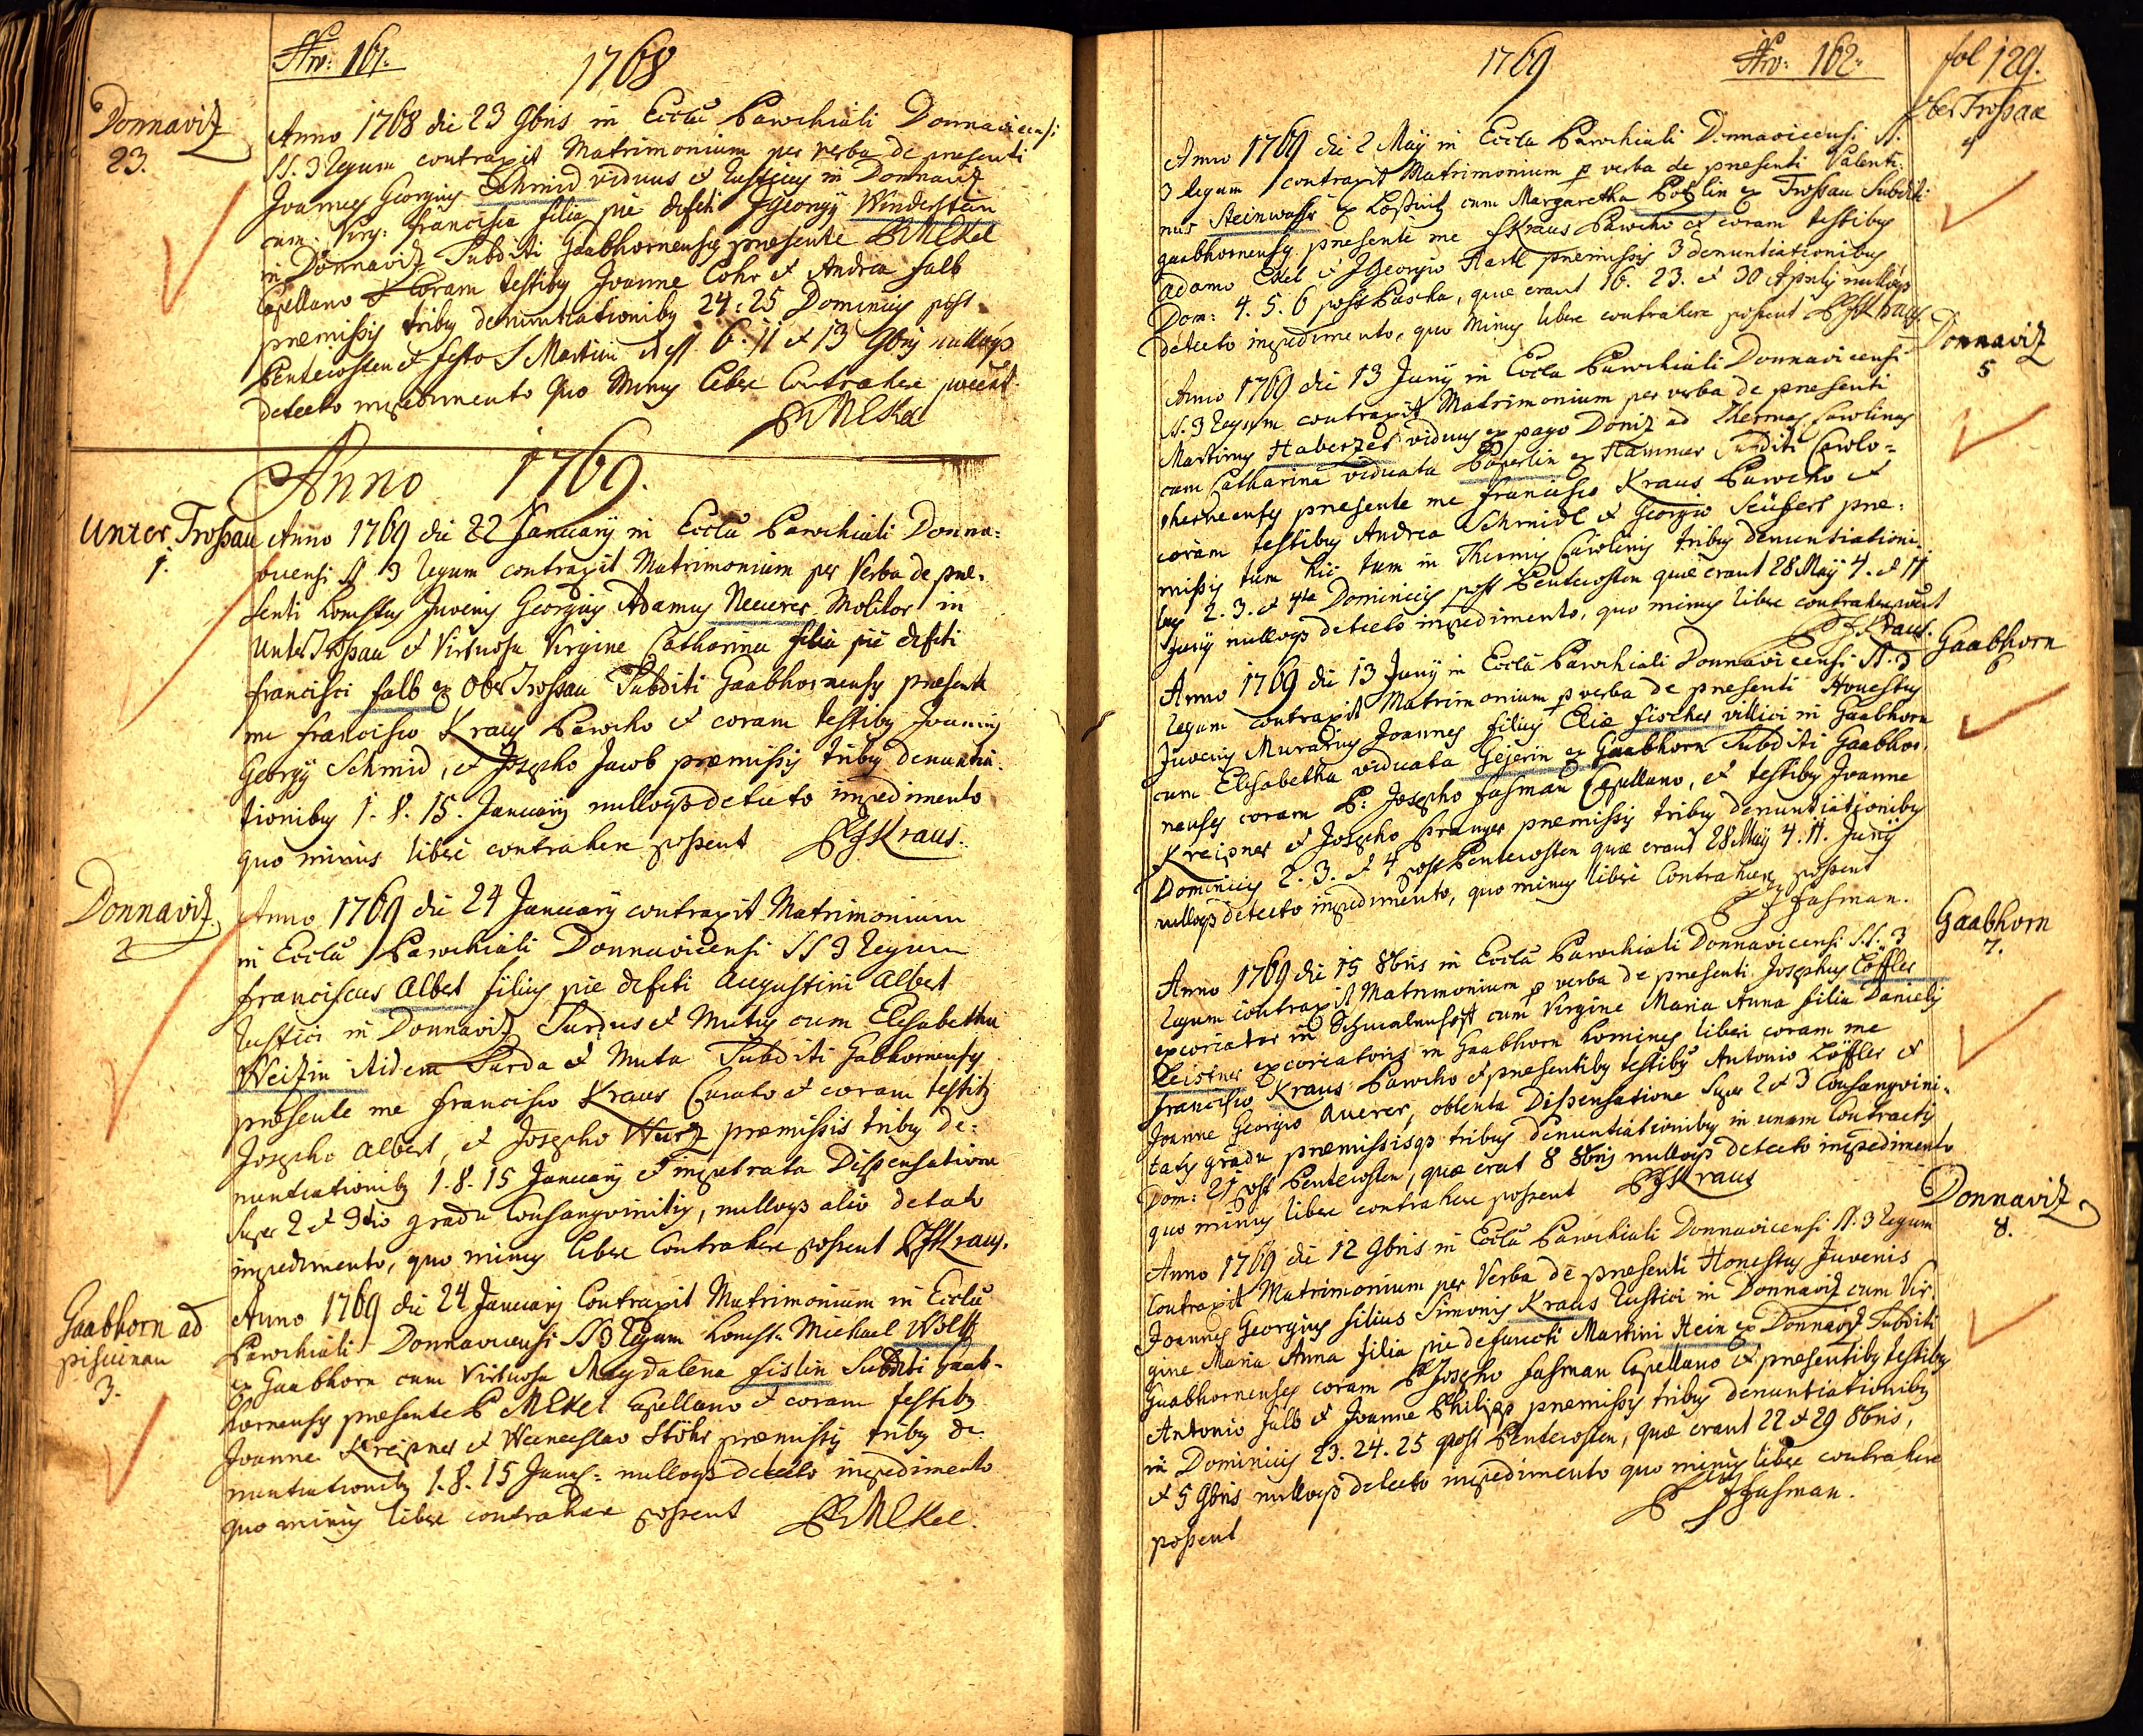 Nro: 161.
1768
Donnaviz
23.
Anno 1768 die 23 9bris in Eccla Parochiali Donnavicensi
SS. 3 Regum contraxit Matrimonium per verba de presenti
Joannes Georgius Schmid viduus et Rusticus in Donnaviz
cum Virg: Francisca filia pie defcti JGeorgy Winderstein
in Donnaviz Subditi Gaabhornenses præsente P MEkel
Capellano et Coram testibus Joanne Lohr et Andrea Falb
præmissis tribus denuntiationibus 24. 25 Dominicis post
Pentecosten et festo S Martini id est 6. 11 et 13 9bris nulloq3
detecto impedimento quo minus libere Contrahere potuerint
P MEkel
Anno 1769.
Unter Trossau
1.
Anno 1769 die 22 January in Eccla Parochiali Donna=
vicensi SS 3 Regum contraxit Matrimonium per Verba de præ-
senti honestus Juvenis Georgius Adamus Neuerer Molitor in
Unter Trossau et Virtuosa Virgine Catharina filia pie defcti
Francisci Falb ex Ober Trossau Subditi Gaabhornenses præsente
me Francisco Kraus Parocho et coram testibus Joannis
Georgy Schmid, et Josepho Jacob præmissis tribus denuntia-
tionibus 1. 8. 15. January nulloq3 detecto impedimento
quo minus libere contrahere possent PFKraus.
Donnaviz
2
Anno 1769 die 24 January contraxit Matrimonium
in Eccla Parochiali Donnavicensi SS 3 Regum
Franciscus Albert filius pie defcti Augustini Albert
Rustici in Donnaviz Surdus et Mutus cum Elisabetha
Weizin itidem Surda et Muta Subditi Gabhornenses
præsente me Francisco Kraus Curato et coram testib9
Josepho Albert, et Josepho Wurz præmissis tribus de=
nuntiationib9 1. 8. 15 January et impetrata Dispensatione
super 2 et 3tio gradu Consangvinitis, nulloq3 alio detecto
impedimento, quo minus libere Contrahere possent PFKraus.
Gaabhorn ad
piscinam
3.
Anno 1769 die 24 January Contraxit Matrimonium in Eccla
Parochiali Donnavicensi SS 3 Regum honest. Michael Wolff
ex Gaabhorn cum Virtuosa Magdalena Fislin Subditi Gaab-
hornenses præsente P MEkel Capellano et coram testib9
Joanne Kreipner et Wenceslao Stöhr præmissis tribus de
nuntiationib9 1. 8. 15 Janry: nulloq3 detecto impedimento
quo minus libere contrahere possent P MEkel.
1769
Nro: 162.
fol 129.
Ober Trossau
4
Anno 1769 die 2 May in Eccla Parochiali Donnavicensi SS.
3 Regum contraxit Matrimonium p verba de præsenti Valenti-
nus Steinwasser ex Loßnitz cum Margaretha Pößlin ex Trossau Subditi
gaabhornenses præsente me FKraus Parocho et coram testibus
Adamo Ekel et JGeorgio Hartl præmissis 3 denuntiationibus
Dom: 4. 5. 6 post Pascha, quæ erant 16. 23. et 30 Aprilis nulloq3
detecto impedimento, quo minus libere contrahere possent PFKraus
Donnaviz
5
Anno 1769 die 13 Juny in Eccla Parochiali Donnavicensi
SS. 3 Regum contraxit Matrimonium per verba de præsenti
Martinus Haberzer viduus ex pago Doniz ad Thermas Carolinas
cum Catharina viduata Päperlin ex Hammer Subditi Carolo=
thermenses præsente me Francisco Kraus Parocho et
coram testibus Andrea Schmidl et Georgio Seüfert præ-
missis tum hic tum in Thermis Carolinis tribus denuntiationi-
bus 2. 3. et 4ta Dominicis post Pentecosten quæ erant 28 May 4. et 11
Juny nulloq3 detecto impedimento, quo minus libere contrahere possent
PFKraus.
Gaabhorn
6
Anno 1769 die 13 Juny in Eccla Parochiali Donnavicensi SS. 3
Regum contraxit Matrimonium p verba de præsenti Honestus
Juvenis Murarius Joannes filius Eliæ Fischer villici in Gaabhorn
cum Elisabetha viduata Gejerin ex Gaabhorn Subditi Gaabhor-
nenses coram P: Josepho Fasman Capellano, et testibus Joanne
Kreipner et Josepho Pranger præmissis tribus denuntiationibus
Dominicis 2. 3. et 4 post Pentecosten quæ erant 28 May 4. 11. Juny
nulloq3 detecto impedimento, quo minus libere Contrahere possent
P J Fasman.
Gaabhorn
7.
Anno 1769 die 15 8bris in Eccla Parochiali Donnavicensi S.S. 3
Regum contraxit Matrimonium p verba de præsenti Josephus Löffler
excoriator in cum Virgine Maria Anna filia Danielis
Leistner excoriatoris in Gaabhorn homines liberi coram me
Francisco Kraus Parocho et præsentibus testibus Antonio Löffler et
Joanne Georgio Auerer, obtenta Dispensatione super 2 et 3 Consangvini-
tatis gradu præmissisq3 tribus denuntiationibus in unam Contractis
Dom: 21 post Pentecosten, quæ erat 8 8bris nulloq3 detecto impedimento
quo minus libere contrahere possent PFKraus
Donnaviz
8.
Anno 1769 die 12 9bris in Eccla Parochiali Donnavicensi SS. 3 Regum
Contraxit Matrimonium per Verba de præsenti Honestus Juvenis
Joannes Georgius filius Simonis Kraus Rustici in Donnaviz cum Vir-
gine Maria Anna filia pie defuncti Martini Hein ex Donnaviz Subditi
Gaabhornenses coram P Josepho Fasman Capellano et præsentibus testibus
Antonio Falb et Joanne Philipp præmissis tribus denuntiationibus
in Dominicis 23. 24. 25 post Pentecosten, quæ erant 22 et 29 8bris,
et 5 9bris nulloq3 detecto impedimento quo minus libere contrahere
possent
P JFasman.